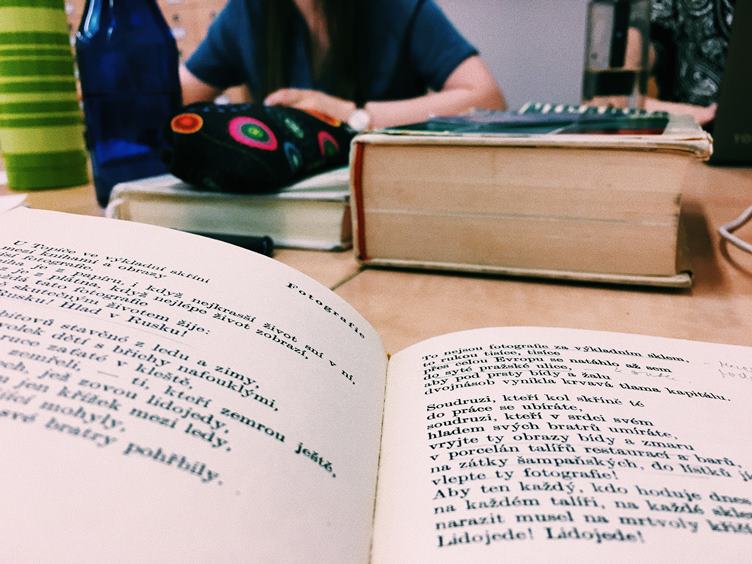 Fotografie
U Topiče ve výkladní skříni
mezi knihami a obrazy
fotografie.
je z papíru, i když nejkrasší život sní v ní,
je z plátna, když nejlépe život zobrazí,
tato fotografie
skutečným životem žije:
Rusku! Hlad v Rusku!
stavěné z ledu a zimy,
dětí s břichy nafouklými,
ruce zaťaté v křeště,
zemřeli, — ti, kteří zemrou ještě,
jež zovou lidojedy,
jen křížek mezi ledy,
mohyly,
své bratry pohřbily.
To nejsou fotografie za výkladním sklem,
to rukou tisíce, tisíce
přes celou Evropu se natáhle až sem
do syté pražské ulice,
aby pod prsty bídy a žalu
dvojnásob vynikla krvavá tlama kapitálu.
Soudruzi, kteří kol skříně té
do práce se ubíráte,
soudruzi, kteří v srdci svém
hladem svých bratrů umíráte,
vryjte ty obrazy bídy a zmaru
v porcelán talířů restaurací a barů,
na zátky šampaňských, do lístků
vlepte ty fotografie!
Aby ten každý, kdo hoduje dnes
na každém talíři, na každé
narazit musel na mrtvoly
Lidojede! Lidojede!